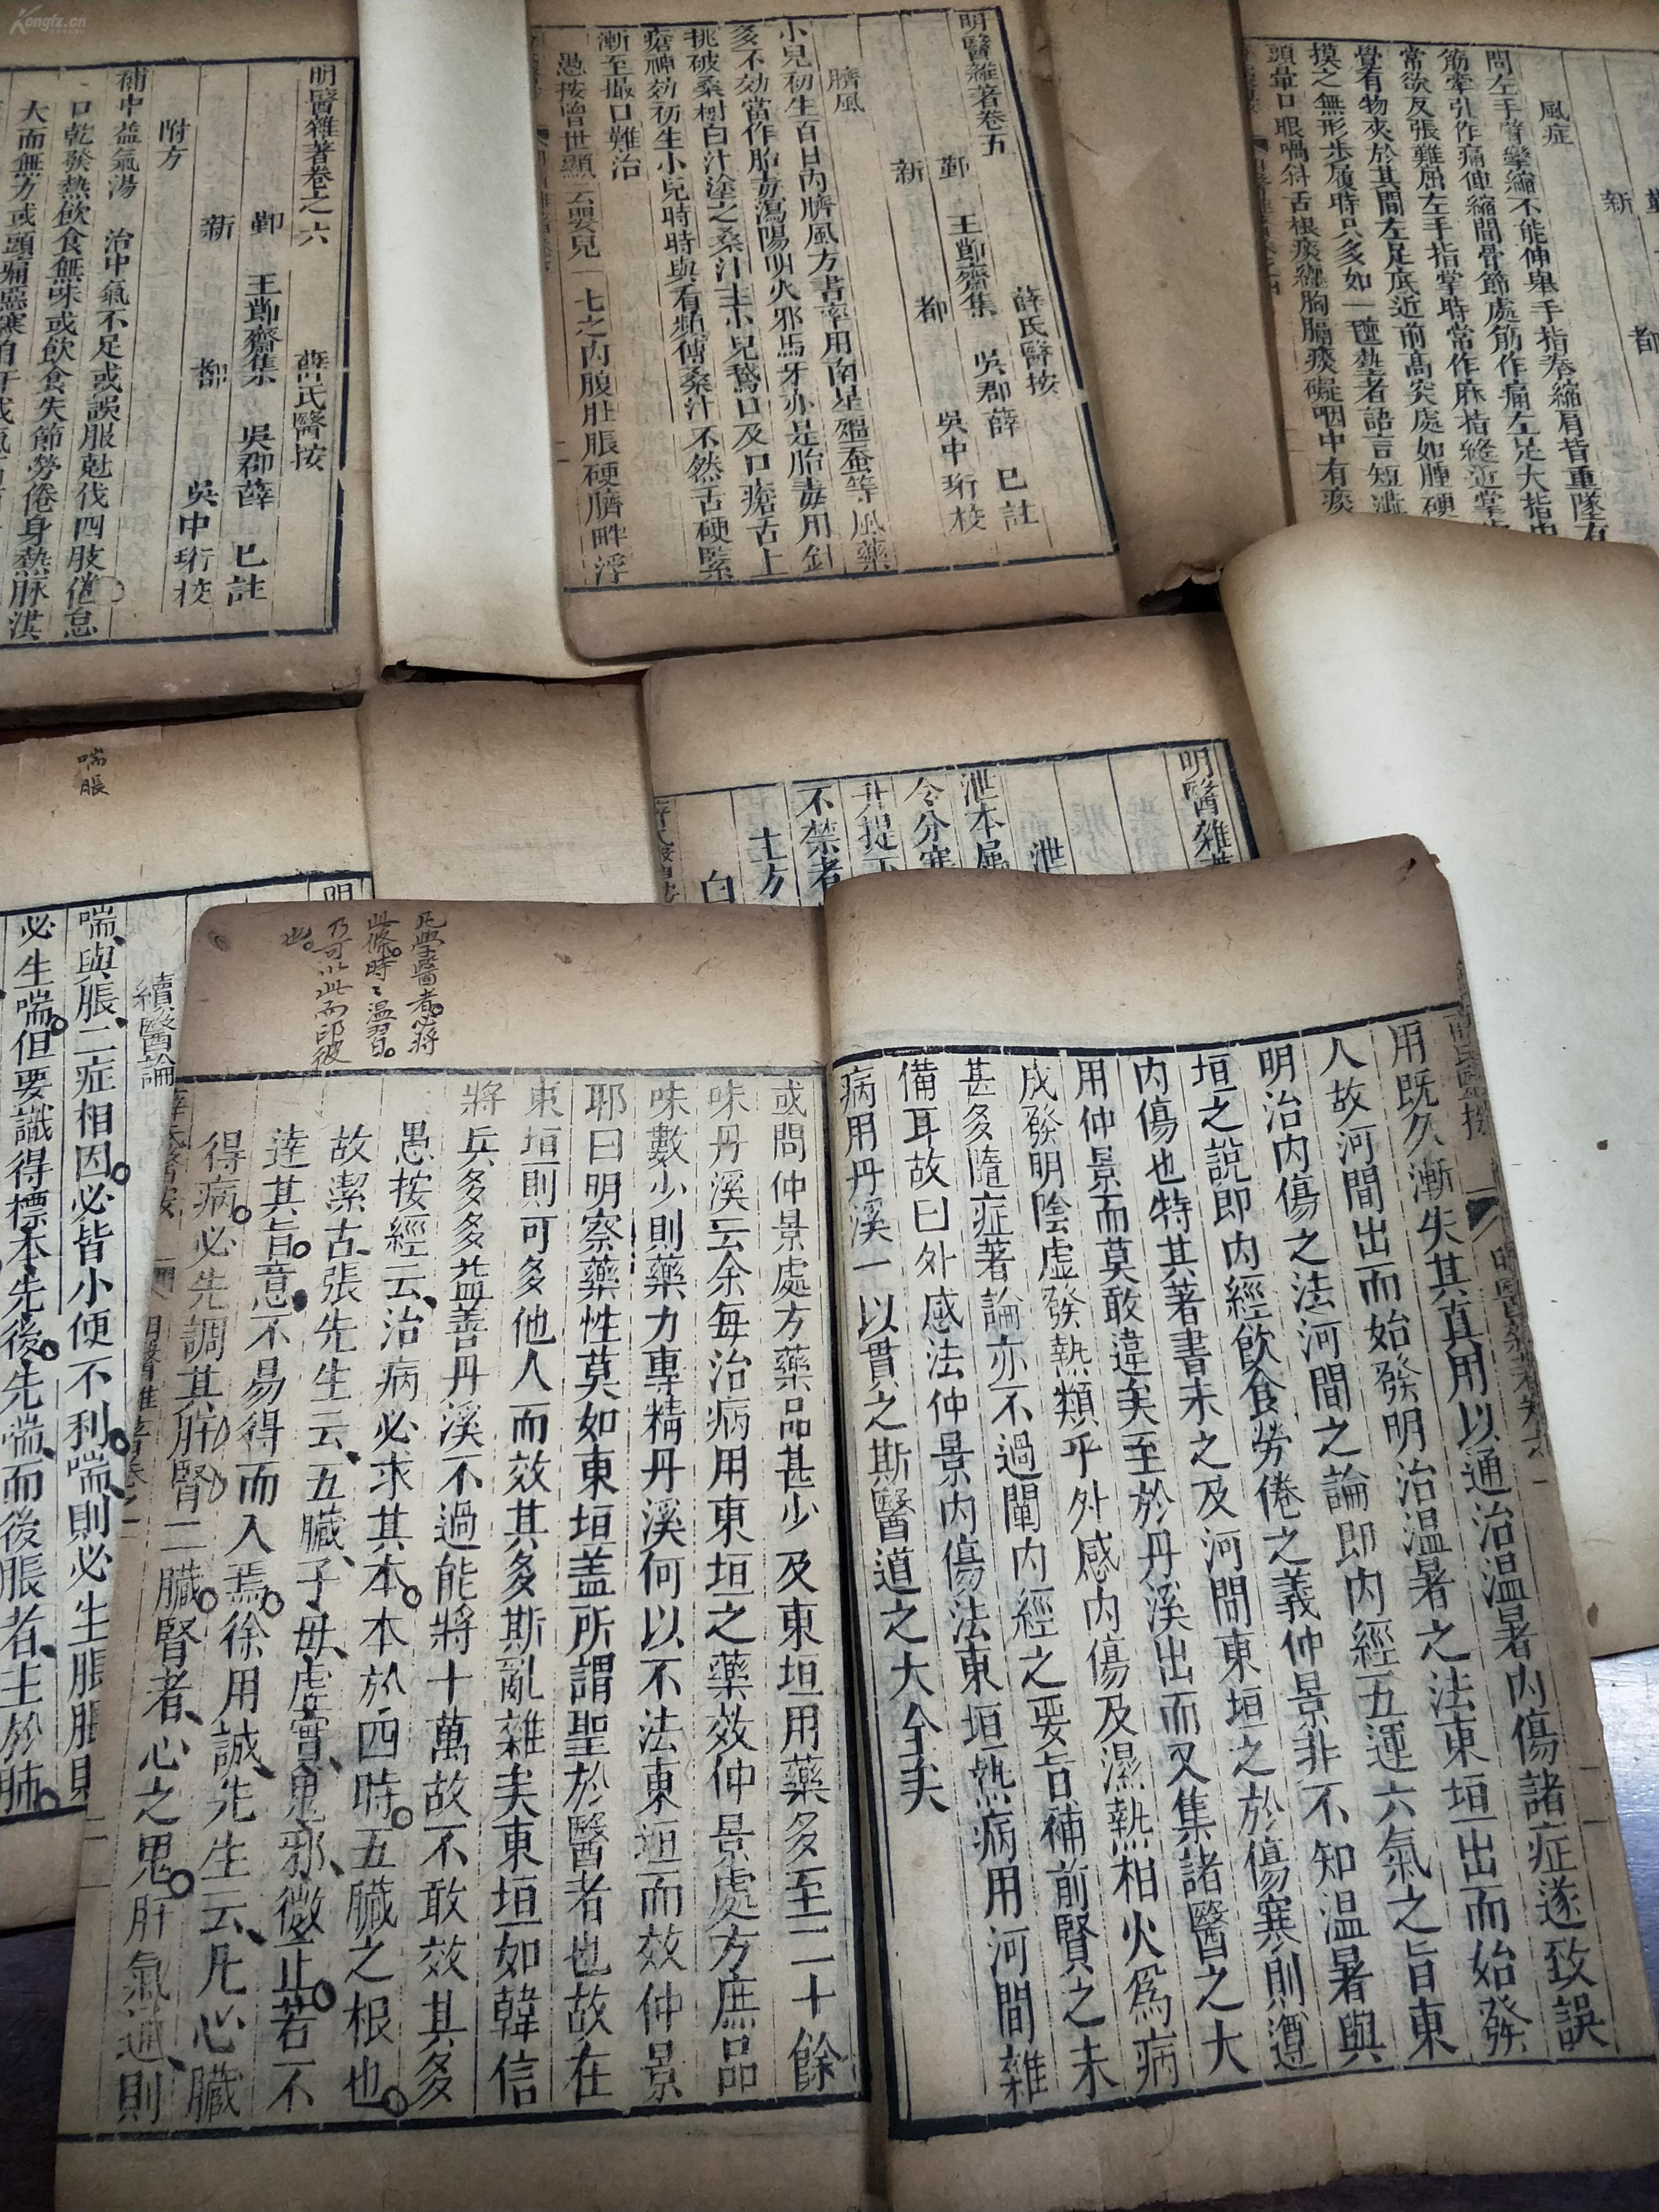 Kongfz.cn
明醫雜著卷之六
薛氏醫按
鄞 王節齋集 吳郡薛 已註
新 都 吳中珩校
附方
補中益氣湯 治中氣不足或誤服尅伐四肢倦怠
口乾發熱飲食無味或飲食失節勞倦身熱脉洪
大而無力或頭痛惡寒自汗
明醫雜著卷五
薛氏醫按
鄞 王節齋集 吳郡薛 已註
新 都 吳中珩校
臍風
小兒初生百日內臍風方書率用南星殭蚕等風藥
多不効當作胎毒瀉陽明火邪馬牙亦是胎毒用針
挑破桑樹白汁塗之桑汁主小兒鵝口及口瘡舌上
瘡神効初生小兒時時與看頻傳桑汁不然舌硬緊
漸至撮口難治
愚按曾世顯云嬰兒一七之內腹肚脹硬臍畔浮
新 都
風症
問左手臂攣縮不能伸舉手指拳縮肩背重墜有
筋牽引作痛伸縮間骨節處筋作痛左足大指
常欲反張難屈左手指掌時常作麻指縫近掌
覺有物夾於其間左足底近前高突處如腫硬
摸之無形步履時只多如一
頭暈口眼喎斜舌根痰纏胸膈痰礙咽中有痰
明醫雜
泄
泄本屬
今分寒
升提下
不禁者
土方
白
喘脹
明
續醫論
喘與脹二症相因必皆小便不利喘則必生脹脹則
必生喘但要識得標本先後先喘而後脹者主於肺
用既久漸失其真用以通治温暑內傷諸症遂致誤
人故河間出而始發明治温暑之法東垣出而始發
明治內傷之法河間之論即內經五運六氣之旨東
垣之說即內經飲食勞倦之義仲景非不知温暑與
內傷也特其著書未之及河間東垣之於傷寒則遵
用仲景而莫敢違矣至於丹溪出而又集諸醫之大
成發明陰虛發熱類乎外感內傷及濕熱相火爲病
甚多隨症著論亦不過闡內經之要旨補前賢之未
備耳故曰外感法仲景內傷法東垣熱病用河間雜
病用丹溪一以貫之斯醫道之大全矣
凡學醫者必將
此條時々温習
乃可以此而印彼
也
或問仲景處方藥品甚少及東垣用藥多至二十餘
味丹溪云余每治病用東垣之藥效仲景處方庶品
味數少則藥力專精丹溪何以不法東垣而效仲景
耶曰明察藥性莫如東垣盖所謂聖於醫者也故在
東垣則可多他人而效其多斯亂雜矣東垣如韓信
將兵多多益善丹溪不過能將十萬故不敢效其多
愚按經云治病必求其本本於四時五臟之根也
故潔古張先生云五臟子母虛實鬼邪微正若不
達其旨意不易得而入焉徐用誠先生云凡心臟
得病必先調其肝腎二臟腎者心之鬼肝氣通則